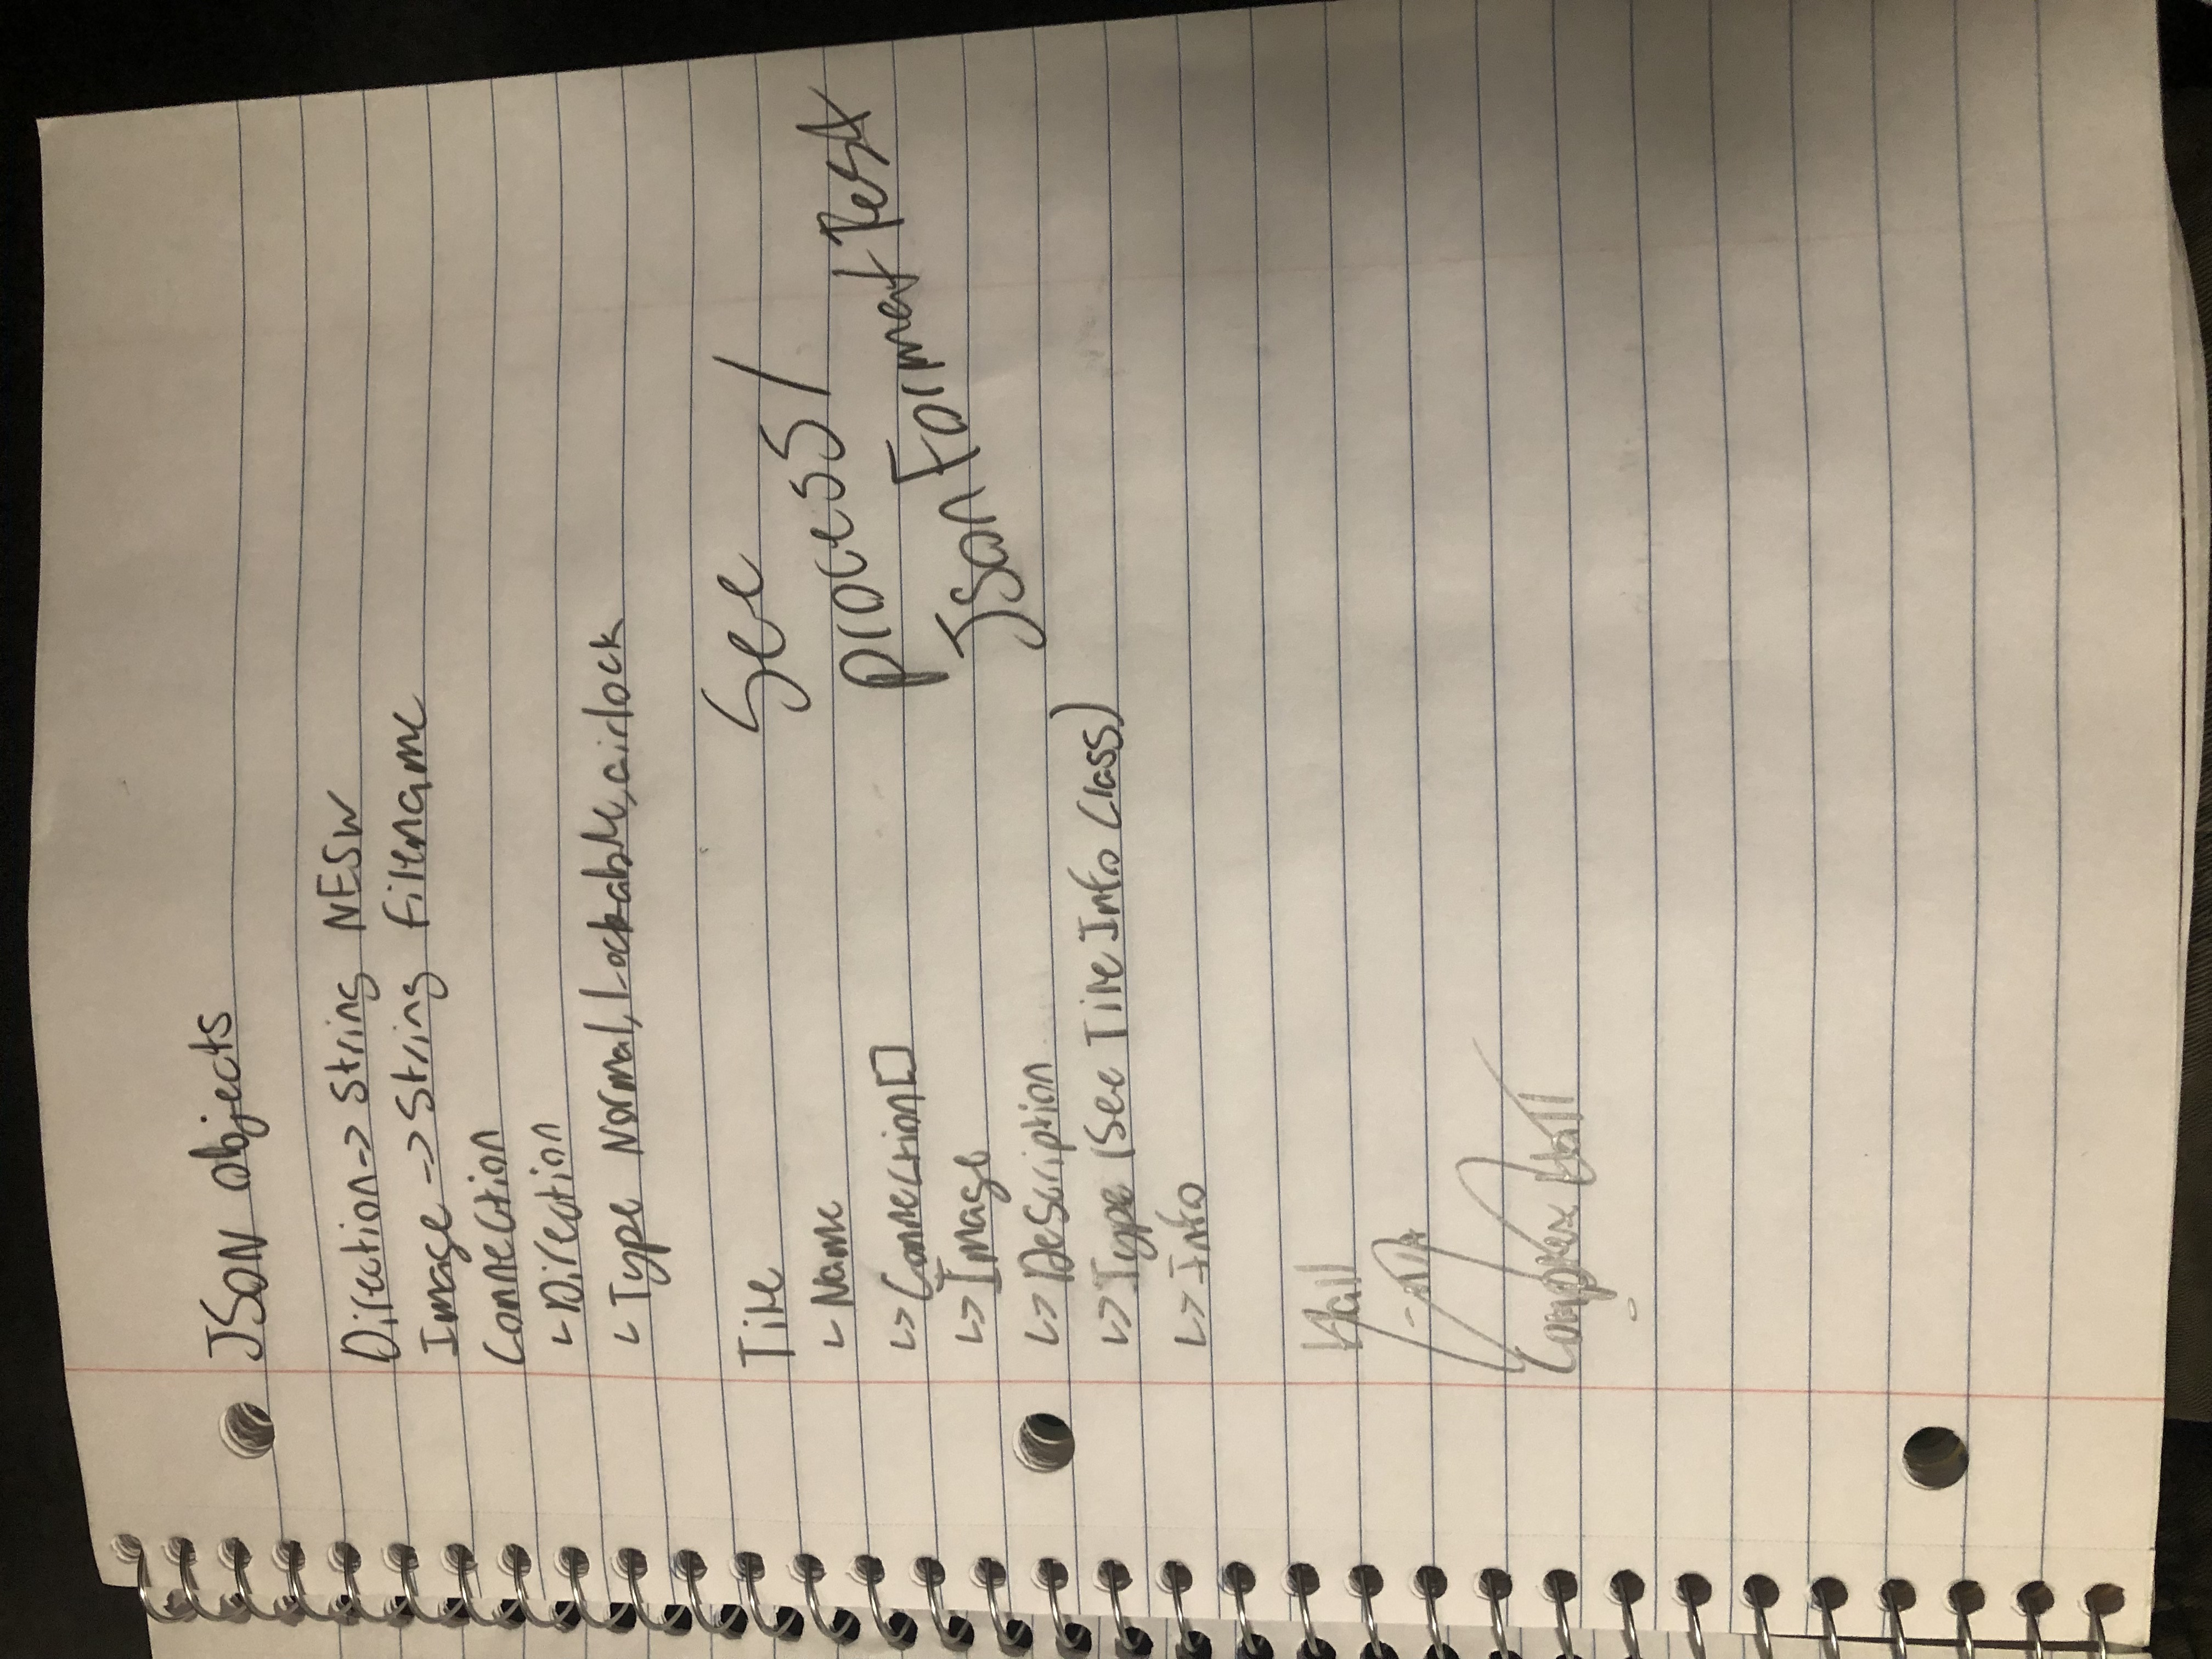 JSON Objects
Direction -> String NESW
Image -> String filename
Connection
↳ Direction
↳ Type Normal, Lockable, airlock
Tile
↳ Name
↳ Connection[]
↳ Image
↳ Description
↳ Type (See Tile Info Class)
↳ Info
See
process/
Json Format Test
Hall
Complex Hall
-